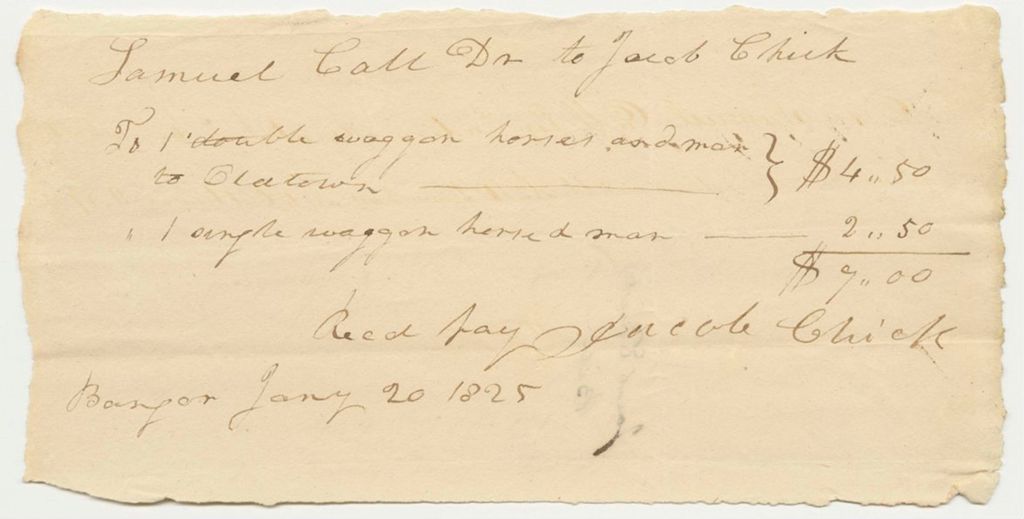 Samuel Call Dr to Jacob Chick
To 1 double waggon horses and man $4,,50
to Oldtown
" 1 single waggon horse & man 2,,50
$7,,00
Recd pay Jacob Chick
Bangor Jany 20 1825